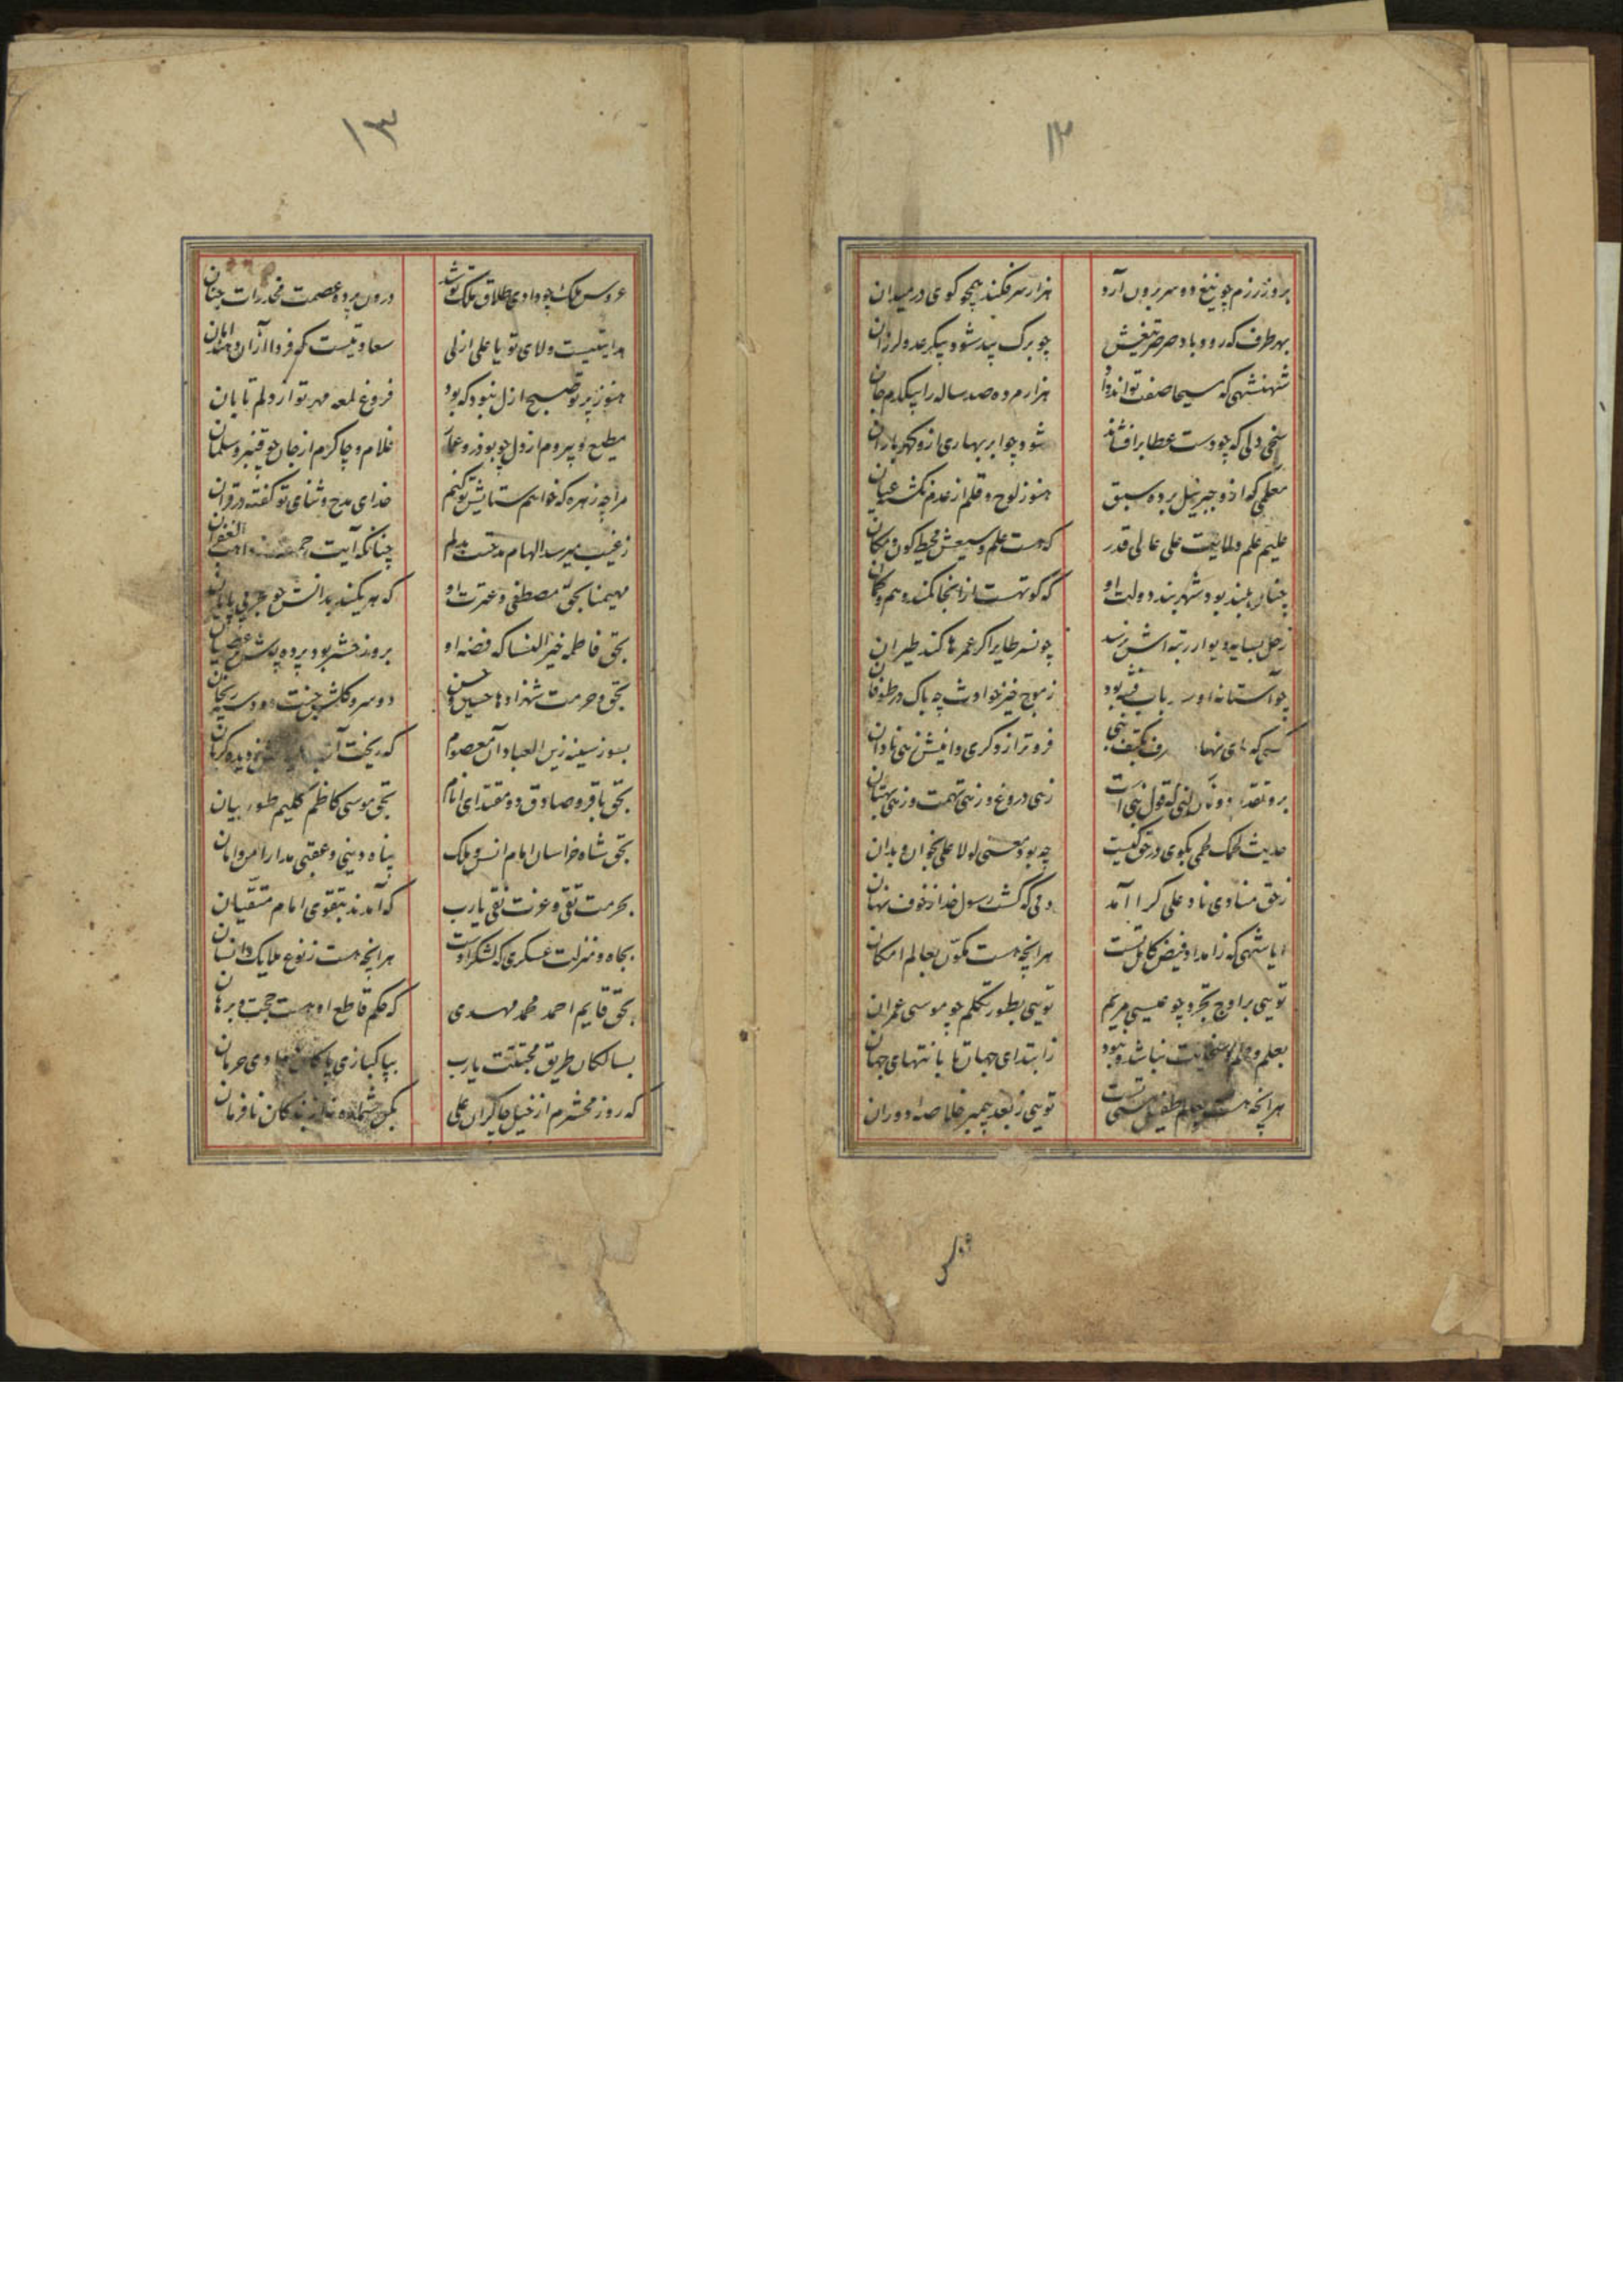 ۱۲
بروز رزم چو تیغ دو سر برون آرد
هزار سر فکند همچو کوی در میدان
بهر طرف که رود باد صرصر تیغش
چو برک بید شود پیکر عدو لرزان
شهنشهی که مسیحا صفت تواند داد
هزار مرده صد ساله را بیکدم جان
سخی دلی که چو دست عطا برافشاند
شود چو ابر بهاری ازو کهر باران
معلمی که ازو جبرییل برده سبق
هنوز لوح و قلم از عدم نکشته عیان
علیم علم ولایت علی عالی قدر
که هست علم وسیعش محیط کون و مکان
چنان بلند بود شهر بند دولت او
که کوتهست از انجا کمند وهم و کمان
زحل بسایه دیوار رتبه اش نرسد
چو نسر طایر اکر عمرها کند طیران
چو آستانه او باب
ز موج خیز حوادث چه باک در طوفان
کسی که پای نهد بر کتف نبی
فروتر از دکری دانیش زهی نادان
برو
زهی دروغ و زهی تهمت و زهی بهتان
حدیث لحمک لحمی بکوی در حق کیست
چه بود معنی لولا علی بخوان و بدان
ز حق منادی ناد علی کرا آمد
دمی که کشت رسول خدا ز خوف نهان
ایا شهی که ز امداد فیض کامل تست
هرانچه هست مکون بعالم امکان
تویی بر اوج تجرد چو عیسی مریم
تویی بطور تکلم چو موسی عمران
بعلم و حلم و سخایت نباشد و نبود
ز ابتدای جهان تا بانتهای جهان
هرانچه هست بعالم طفیل هستی تست
تویی ز بعد پیمبر خلاصه دوران
عروس
۱۳
عروس ملک چو دادی طلاق ملک تو شد
درون پرده عصمت مخدرات جنان
هدایتیست ولای تو یا علی ازلی
سعادتیست که فردا از آن دهند امان
هنوز پرتو صبح ازل نبود که بود
فروغ لمعه مهر تو از دلم تابان
مطیع و پیروم از دل چو بوذر و عمار
غلام و چاکرم از جان چو قنبر و سلمان
مرا چه زهره که خواهم ستایش تو کنم
خدای مدح و ثنای تو کفته در قرآن
ز غیب میرسد الهام مدحتت بدلم
چنانکه آیت رحمت
مهیمنا بحق مصطفی و عترت او
که هر یکند بدانش چو بحر بی پایان
بحق فاطمه خیر النسا که فضه او
بروز حشر بود پرده پوش عصیان
بحق و حرمت شهزادها حسین و حسن
دو سرو کلشن جنت دو دسته ریحان
بسوز سینه زین العباد آن معصوم
که ریخت آب ز دیده کریان
بحق باقر و صادق دو مقتدای انام
بحق موسی کاظم کلیم طور بیان
بحق شاه خراسان امام انس و ملک
پناه دینی و عقبی مدار امن و امان
بحرمت تقی و عزت نقی یارب
که آمدند بتقوی امام متقیان
بجاه و منزلت عسکری که لشکر اوست
هرانچه هست ز نوع ملایک و انسان
بحق قایم احمد محمد مهدی
که حکم قاطع او هست حجت و برهان
بسالکان طریق محبتت یارب
بپاکبازی پاکان وادی حرمان
که روز محشرم از خیل چاکران علی
بکن شماره نه از بندکان نافرمان